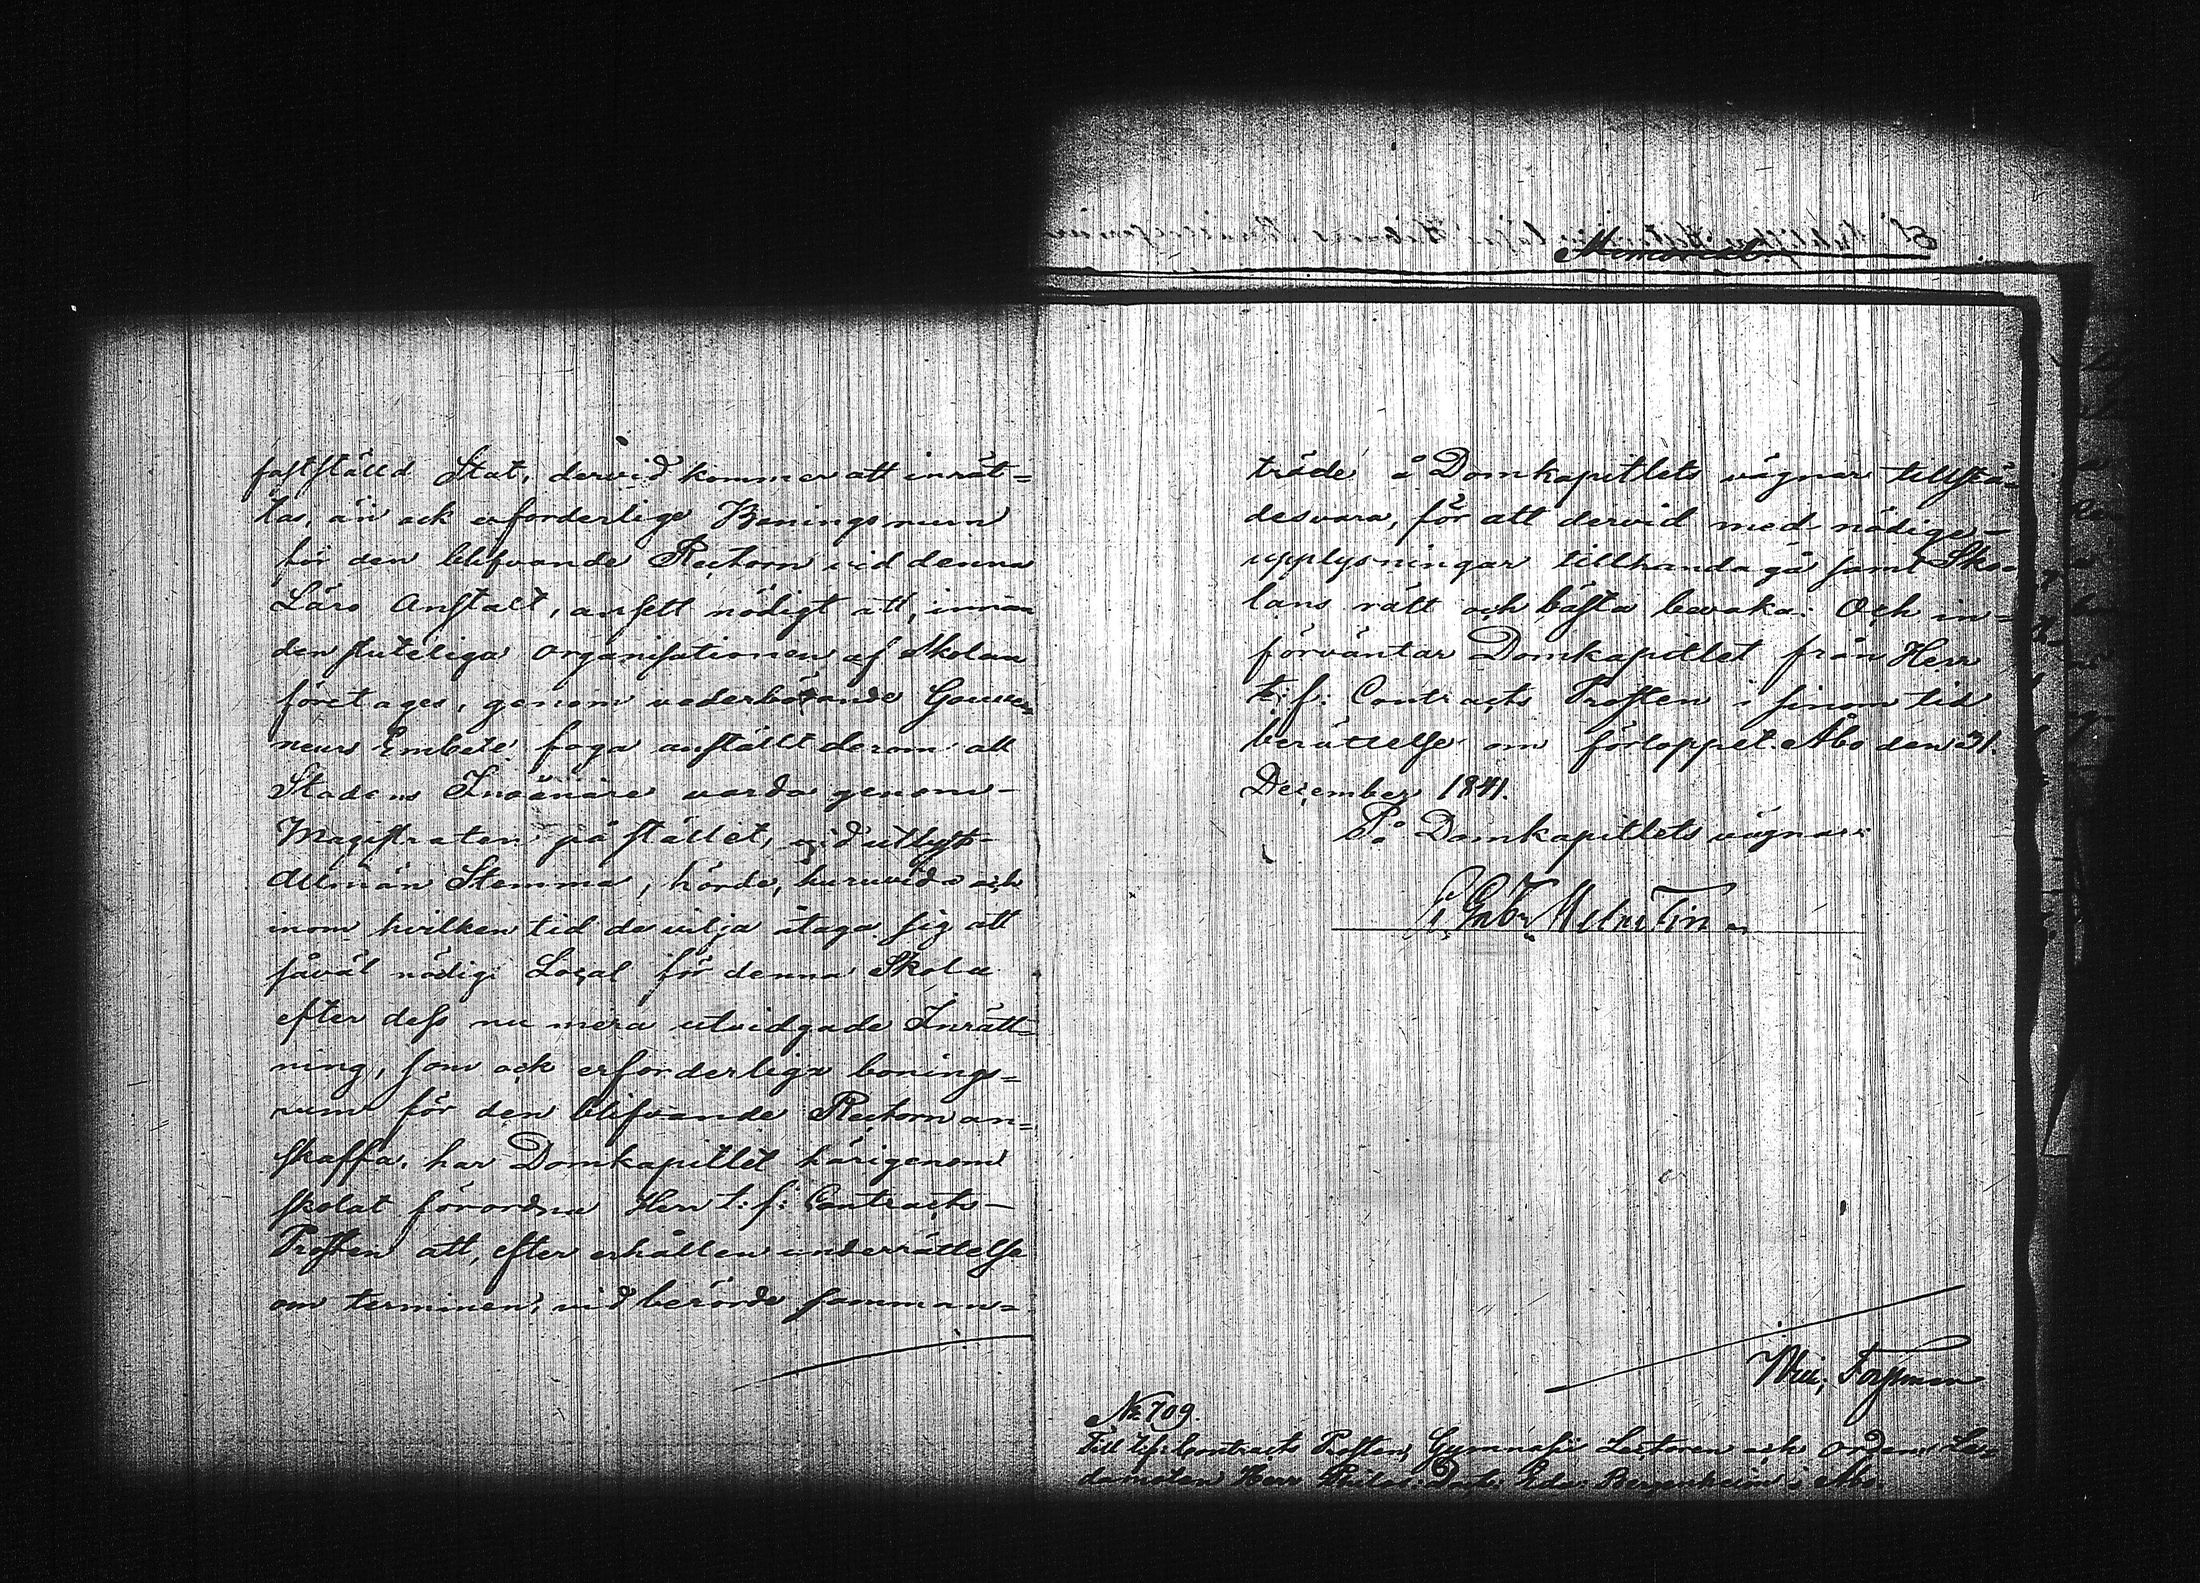 fastställd Stat, dervid kommer att inrät=
tas, än ock erforderlige Boningsrum
för den blifvande Rectorn vid denna
Läro Anstalt, ansett nödigt att, innan
den sluteliga organisationen af Skolan
företages, genom vederbörande Gouver=
neurs Embete foga anställt derom att
Stadens Invånare varda genom
Magistraten på stället, vid utlyst
allmän Stemma, hörde, huruvida och
inom hvilken tid de vilja åtaga sig att
såväl nödig Local för denna Skola
efter dess nu mera utvidgade Inrätt=
ning, som ock erforderliga bonings=
rum för den blifvande Rectorn an=
skaffa, har Domkapitlet härigenom
skolat förordna Herr t: f: Contracts-
Prosten att, efter erhållen underrättelse
om terminen, vid berörde samman=
träde å Domkapitlets vägnar tillstä=
des vara, för att dervid med nödige
upplysningar tillhanda gå samt Sko=
lans rätt och bästa bevaka. Och in=
förväntar Domkapitlet från Herr
t: f: Contracts Prosten i sinom tid
berättelse om förloppet. Åbo den 31.
December 1841.
På Domkapitlets vägnar:
G: Gabr: Melartin
№ 709.
Till t.f. Contracts Prosten, Gymnasii Lectoren och Ordens Le=
damoten Herr Philos: Doct: Edv: Bergenheim i Åbo.